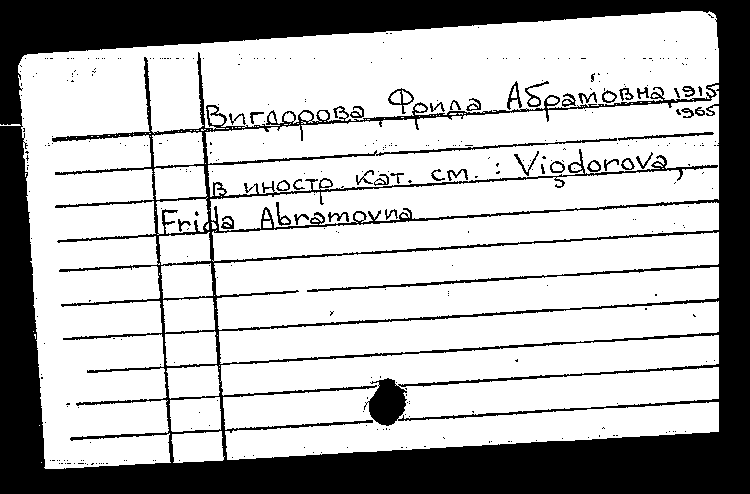 Вигдорова, Фрида Абрамовна, 1915-
1965
в иностр. кат. см.: Vigdorova,
Frida Abramovna